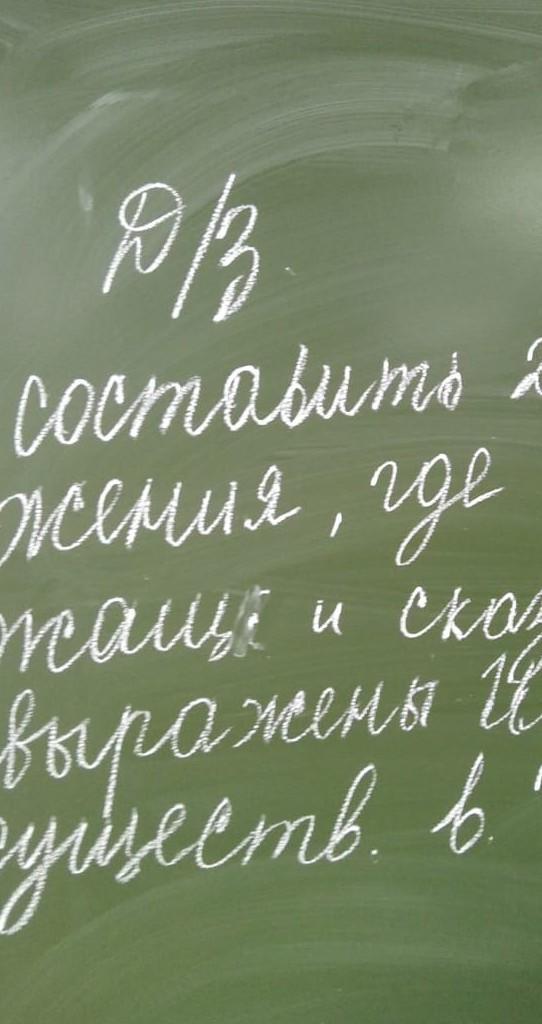 Д/З.
составить 2
жения, где
жащ и сказ
выражены И
существ. в.